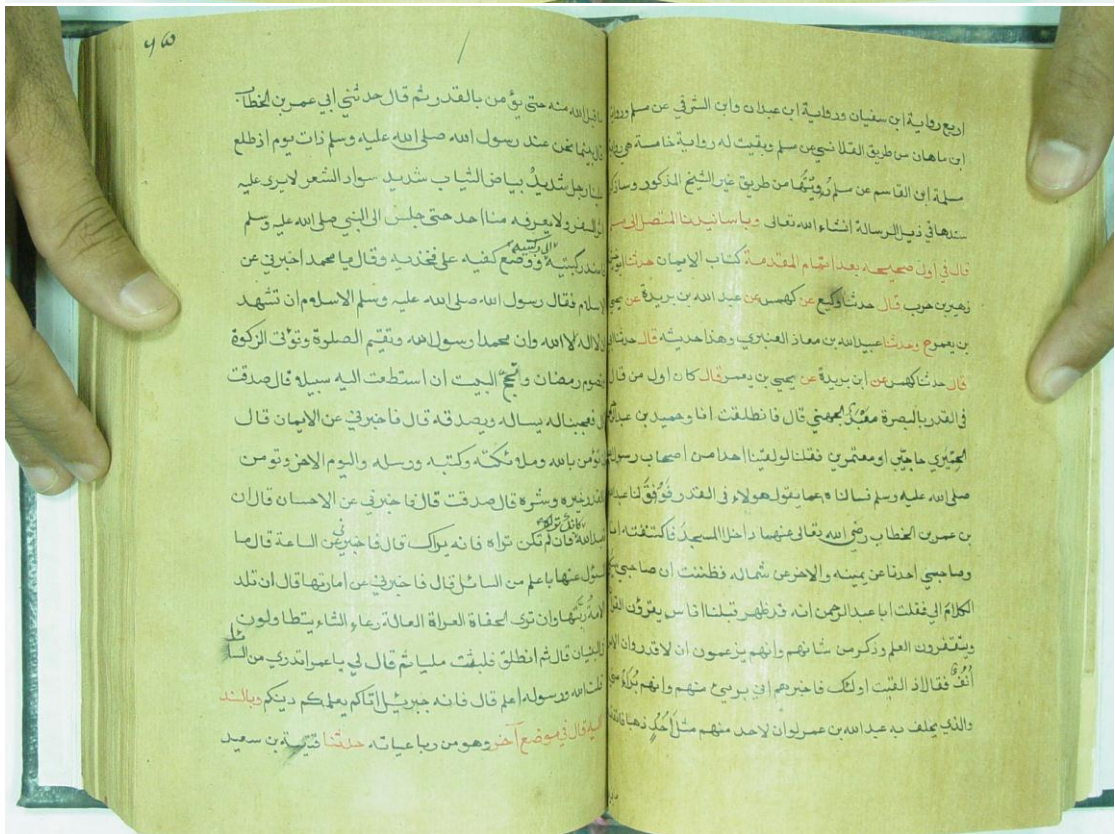 اربع رواية ابن سفيان ورواية ابن عبدان وابن الشرقي عن مسلم ورواية
ابن ماهان من طريق القلانسي عن مسلم وبقيت له رواية خامسة هي رواية
مسلمة ابن القاسم عن مسلم رويتها من طريق غير الشيخ المذكور وساذكر
سندها في ذيل الرسالة انشاء الله تعالى وباسانيدنا المتصل الى
قال في اول صحيحه بعد اتمام المقدمة كتاب الايمان حدثنا ابو
زهير بن حرب قال حدثنا وكيع عن كهمس عن عبد الله بن بريدة عن يحيى
بن يعمر ح وحدثنا عبيد الله بن معاذ العنبري وهذا حديثه قال حدثنا
قال حدثنا كهمس عن ابن بريدة عن يحيى بن يعمر قال كان اول من قال
في القدر بالبصرة معبد الجهني قال فانطلقت انا وحميد بن عبد
الحميري حاجين او معتمرين فقلنا لو لقينا احدا من اصحاب رسول
صلى الله عليه وسلم نسالناه عما يقول هولاء في القدر فوفق لنا عبد
بن عمر بن الخطاب رضي الله تعالى عنهما داخلا المسجد فاكتنفته انا
وصاحبي احدنا عن يمينه والاخر عن شماله فظننت ان صاحبي
الكلام الي فقلت ابا عبد الرحمن انه قد ظهر قبلنا اناس يقرؤن
ويتقفرون العلم وذكر من شانهم وانهم يزعمون ان لا قدر وان
أنف فقال اذا لقيت اولئك فاخبرهم اني بريئ منهم وانهم برآؤ مني
والذي يحلف به عبد الله بن عمر لو ان لاحدهم مثل أحد ذهبا
۲۶۵
ما قبل الله منه حتى يؤمن بالقدر ثم قال حدثني ابي عمر بن الخطاب
قال بينما نحن عند رسول الله صلى الله عليه وسلم ذات يوم اذ طلع
علينا رجل شديد بياض الثياب شديد سواد الشعر لا يرى عليه
اثر السفر ولا يعرفه منا احد حتى جلس الى النبي صلى الله عليه وسلم
فاسند ركبتيه الى ركبتيه ووضع كفيه على فخذيه وقال يا محمد اخبرني عن
الاسلام فقال رسول الله صلى الله عليه وسلم الاسلام ان تشهد
ان لا اله الا الله وان محمدا رسول الله وتقيم الصلوة وتؤتى الزكوة
وتصوم رمضان وتحج البيت ان استطعت اليه سبيلا قال صدقت
قال فعجبنا له يساله ويصدقه قال فاخبرني عن الايمان قال
ان تؤمن بالله وملائكته وكتبه ورسله واليوم الاخر وتومن
بالقدر خيره وشره قال صدقت قال فاخبرني عن الاحسان قال ان
تعبد الله كانك تراه فان لم تكن تراه فانه يراك قال فاخبرني عن الساعة قال ما
المسؤل عنها باعلم من السائل قال فاخبرني عن امارتها قال ان تلد
الامة ربتها وان ترى الحفاة العراة العالة رعاء الشاء يتطاولون
في البنيان قال ثم انطلق فلبثت مليا ثم قال لي يا عمر اتدري من السائل
قلت الله ورسوله اعلم قال فانه جبريل اتاكم يعلمكم دينكم وبالسند
اليه قال في موضع آخر وهو من رباعياته حدثنا قتيبة بن سعيد